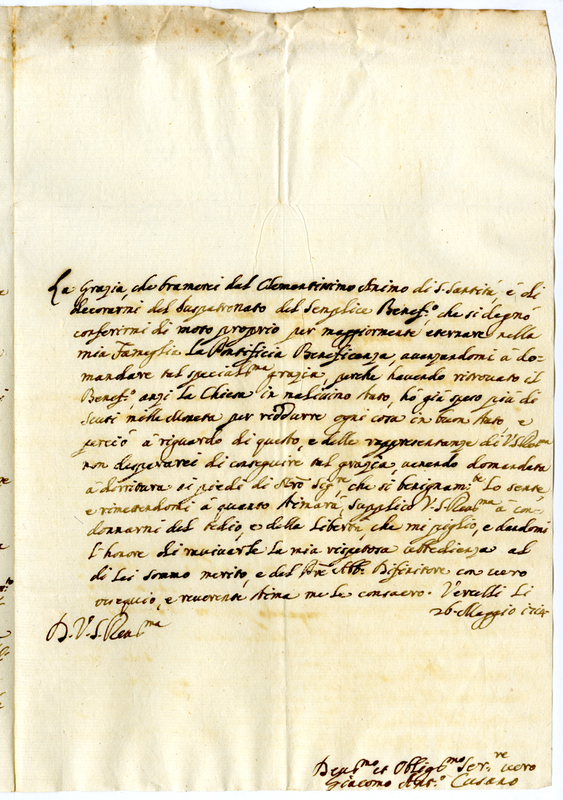 La Grazia, che bramerei dal Clementissimo Animo di S. Santità, è di
decorarmi del Juspatronato del Semplice Benef.º che si degnò
conferirmi di moto proprio per maggiormente eternare nella
mia Famiglia La Pontificia Beneficenza, avanzandomi à do-
mandare tal special.ma grazia, perche havendo ritrovato il
Benef.º anzi la Chiesa in malissimo stato, hò già speso più di
Scuti mille Moneta per ridurre ogni cosa in buon stato, e
perciò à riguardo di questo, e delle rappresentanze di V.S. Reu.ma
non dispererei di conseguire tal grazia, venendo domandata
à dirittura ai piedi di Nrò Sig.re che si benignam.te Lo sente,
e rimettendomi à quanto stimarà, supplico V.S. Reu.ma à con-
donarmi del tedio, e della Libertà che mi piglio, e dandomi
l'honore di ravivarle la mia rispetosa ubbedienza al
di Lei sommo merito, e del Pre Abb. Difinitore con vero
ossequio, e reverente stima me le consacro. Vercelli Li
26. Maggio 1724
D. V. S. Reu.ma
Deu.mo et Obligt.mo Ser.re vero
Giacomo Cusano